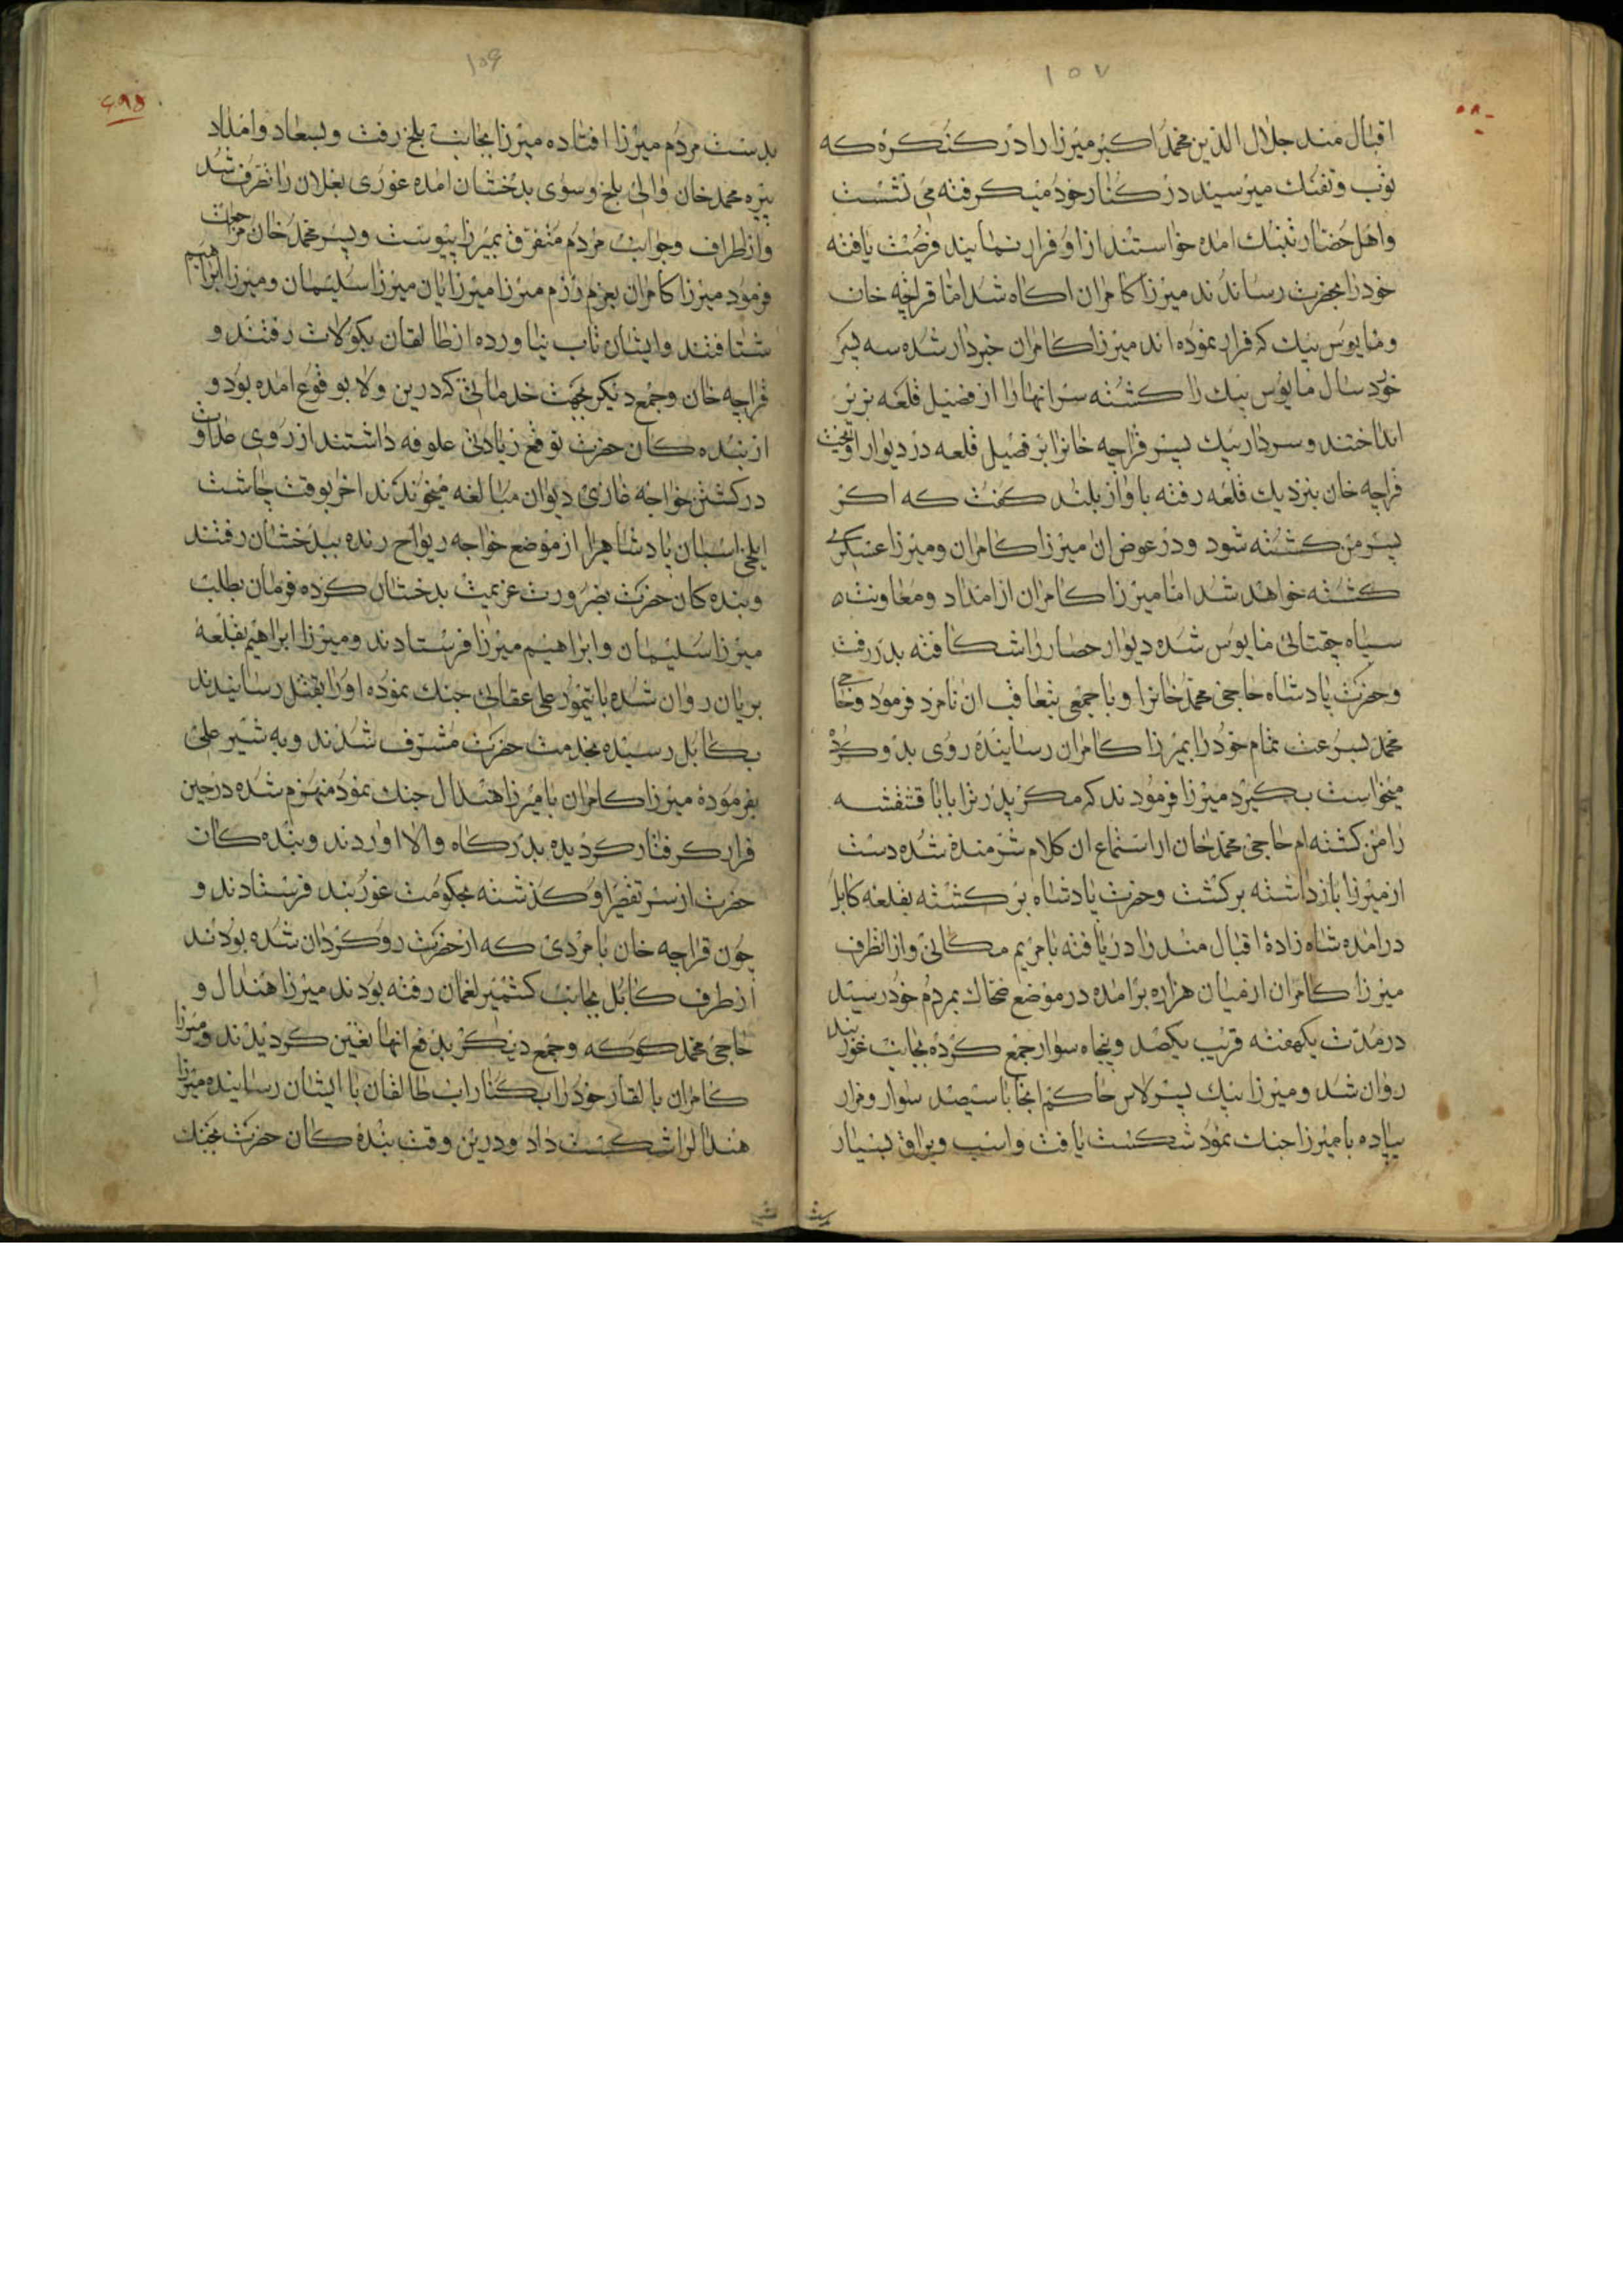 ۱۵۷
اقبال مند جلال الدین محمد اکبر میرزا را در کنکره که
توپ و تفنک میرسید در کنار خود میکرفته می نشست
و اهل حصار بتنک امده خواستند از او فرار نمایند فرصت یافته
خود را بحضرت رساندند میرزا کامران اکاه شد اما قراچه خان
و مایوس بیک که فرار نموده اند میرزا کامران خبردار شده سه پسر
خورد سال مایوس بیک را کشته سر انها را از فصیل قلعه بزیر
انداختند و سردار بیک پسر قراچه خانرا بر فصیل قلعه در دیوار اویخت
قراچه خان بنزدیک قلعه رفته باواز بلند کفت که اکر
پسر من کشته شود و در عوض ان میرزا کامران و میرزا عسکری
کشته خواهد شد اما میرزا کامران از امداد و معاونت
سپاه چغتائی مایوس شده دیوار حصار را شکافته بدر رفت
و حضرت پادشاه حاجی محمد خانرا و با جمعی بتعاقب ان نامزد فرمود و حاجی
محمد بسرعت تمام خود را بمیرزا کامران رسانیده روی بدو کرد
میخواست بکیرد میرزا فرمودند که مکر پدر ترا بابا قشقه
را من کشته ام حاجی محمد خان از استماع ان کلام شرمنده شده دست
از میرزا بازداشته برکشت و حضرت پادشاه برکشته بقلعه کابل
درامده شاه زادۀ اقبال مند را دریافته با مریم مکانی و از انطرف
میرزا کامران از میان هزاره برامده در موضع ضحاک بمردم خود رسید
در مدت یکهفته قریب یکصد و پنجاه سوار جمع کرده بجانب غوربند
روان شد و میرزا بیک برلاس حاکم انجا با سیصد سوار و هزار
پیاده با میرزا جنک نمود شکست یافت و اسب و یراق بسیار
۱۵۶
۹۹۵
بدست مردم میرزا افتاده میرزا بجانب بلخ رفت و بسعاد و امداد
پیر محمد خان والی بلخ و سوی بدخشان امده غوری بغلان را تصرف شد
و از اطراف و جوانب مردم متفرق بمیرزا پیوست و پیر محمد خان مراجعت
فرمود میرزا کامران بعزم رزم میرزا میرزایان میرزا سلیمان و میرزا ابراهیم
شتافتند و ایشان تاب نیاورده از طالقان بکولاب رفتند و
قراچه خان و جمع دیکر بجهت خدماتی که درین ولا بوقوع امده بود و
از بنده کان حضرت توقع زیادتی علوفه داشتند از روی عداوت
در کشتن خواجه غازی دیوان مبالغه میخواندند اخر بوقت چاشت
ایلخی اسبان پادشاهرا از موضع خواجه ریواج رنده ببدخشان رفتند
و بنده کان حضرت بضرورت عزیمت بدخشان کرده فرمان بطلب
میرزا سلیمان و ابراهیم میرزا فرستادند و میرزا ابراهیم بقلعه
بریان روان شده با تیمور علی عقالی جنک نموده او را بقتل رسانیدند
بکابل رسیده بخدمت حضرت مشرف شدند و به شیر علی
بفرمودۀ میرزا کامران با میرزا هندال جنک نمود منهزم شده در حین
فرار کرفتار کردیده بدرکاه والا اوردند و بنده کان
حضرت از سر تقصیر او کذشته بحکومت غوربند فرستادند و
چون قراچه خان با مردی که از حضرت رو کردان شده بودند
از طرف کابل بجانب کشمیر لغمان رفته بودند میرزا هندال و
حاجی محمد کوکه و جمع دیکر بدفع انها تعین کردیدند و میرزا
کامران بایلغار خود را بکنار اب طالقان با ایشان رسانیده میرزا
هندالرا شکست داد و درین وقت بنده کان حضرت بجنک